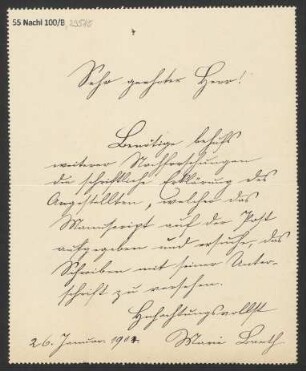 55 Nachl 100/B
Sehr geehrter Herr!
Benötige behufs
weiterer Nachforschungen
die schriftliche Erklärung des
Angestellten, welcher das
Manuscript auf der Post
aufgegeben und ersuche, das
Schreiben mit seiner Unter-
schrift zu versehen.
Hochachtungsvollst
26. Januar 1901. Marie